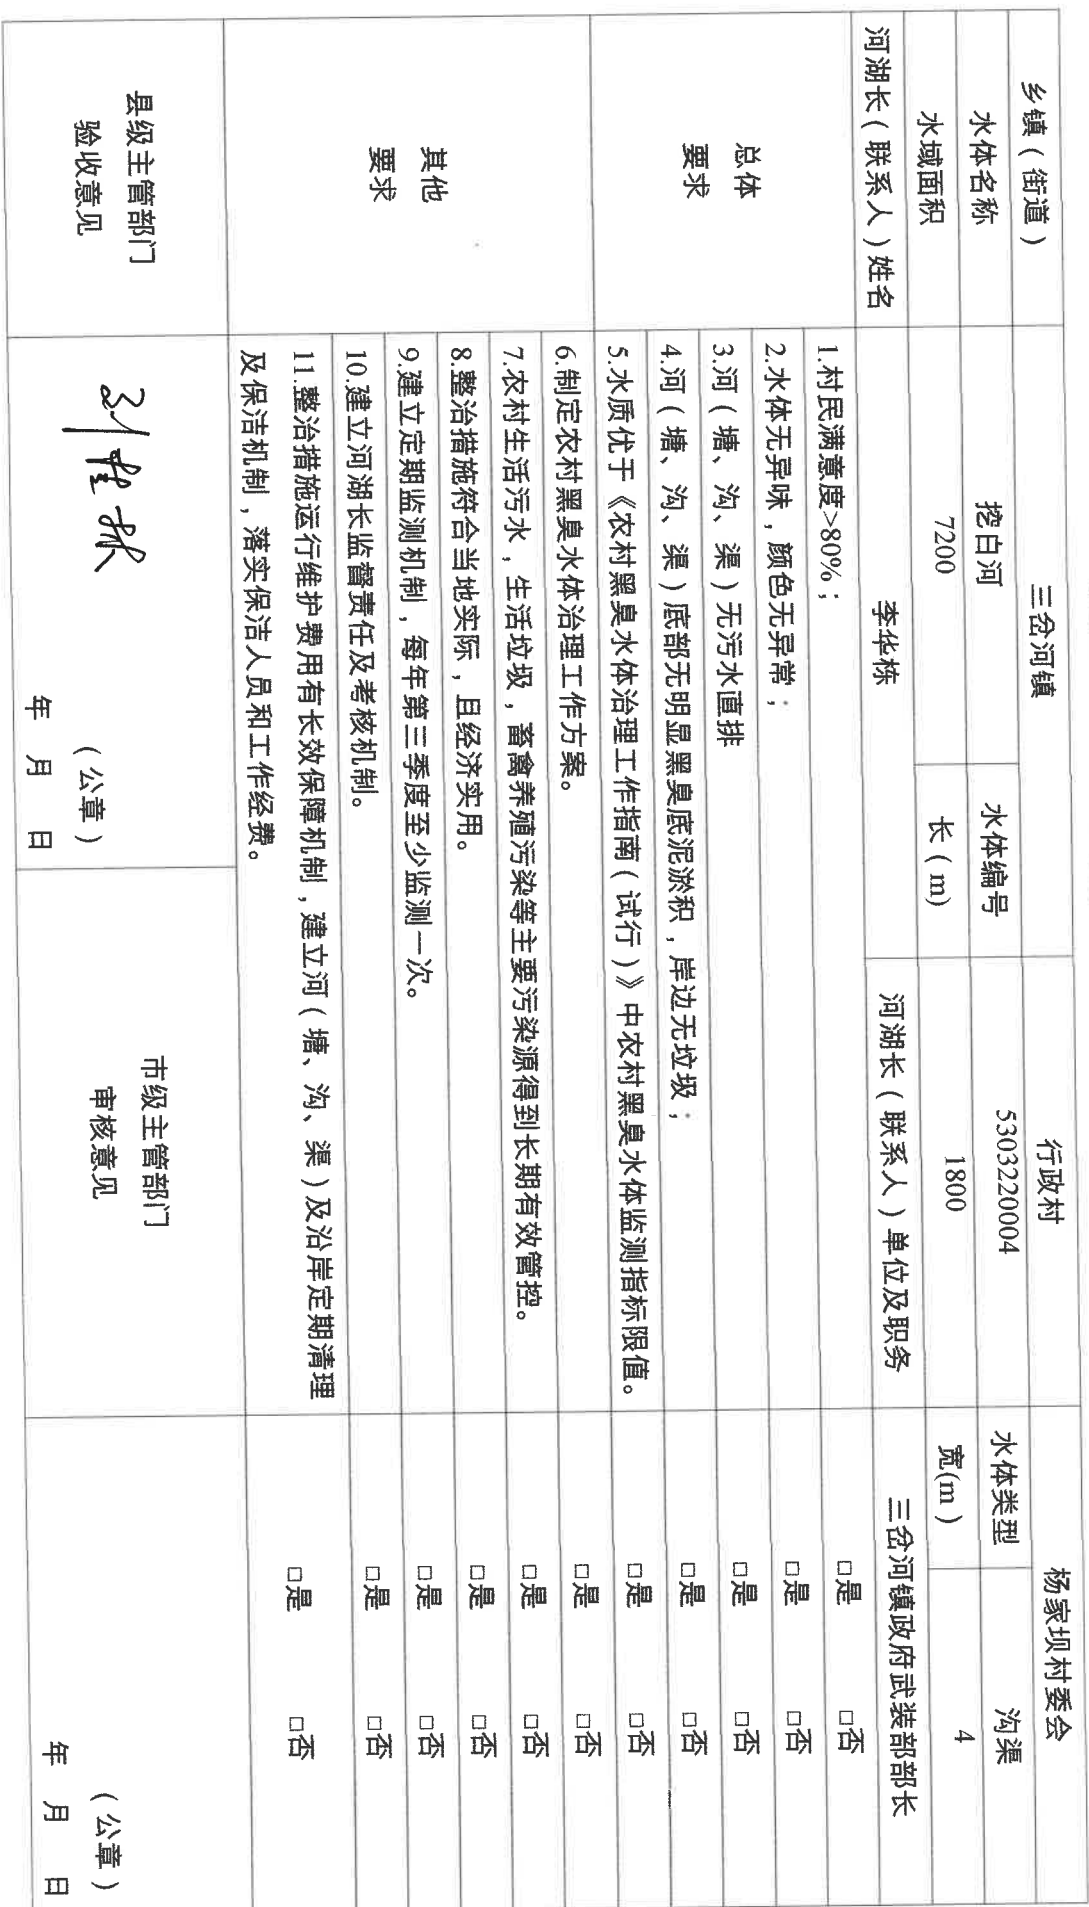 乡镇（街道） 三岔河镇 行政村 杨家坝村委会
水体名称 挖白河 水体编号 5303220004 水体类型 沟渠
水域面积 7200 长（m) 1800 宽(m） 4
河湖长（联系人）姓名 李华栋 河湖长（联系人）单位及职务 三岔河镇政府武装部部长
总体
要求
1.村民满意度>80%； □是 □否
2.水体无异味，颜色无异常； □是 □否
3.河（塘、沟、渠）无污水直排 □是 □否
4.河（塘、沟、渠）底部无明显黑臭底泥淤积，岸边无垃圾； □是 □否
5.水质优于《农村黑臭水体治理工作指南（试行）》中农村黑臭水体监测指标限值。 □是 □否
其他
要求
6.制定农村黑臭水体治理工作方案。 □是 □否
7.农村生活污水，生活垃圾，畜禽养殖污染等主要污染源得到长期有效管控。 □是 □否
8.整治措施符合当地实际，且经济实用。 □是 □否
9.建立定期监测机制，每年第三季度至少监测一次。 □是 □否
10.建立河湖长监督责任及考核机制。 □是 □否
11.整治措施运行维护费用有长效保障机制，建立河（塘、沟、渠）及沿岸定期清理
及保洁机制，落实保洁人员和工作经费。 □是 □否
县级主管部门
验收意见
（公章）
年 月 日
市级主管部门
审核意见
（公章）
年 月 日